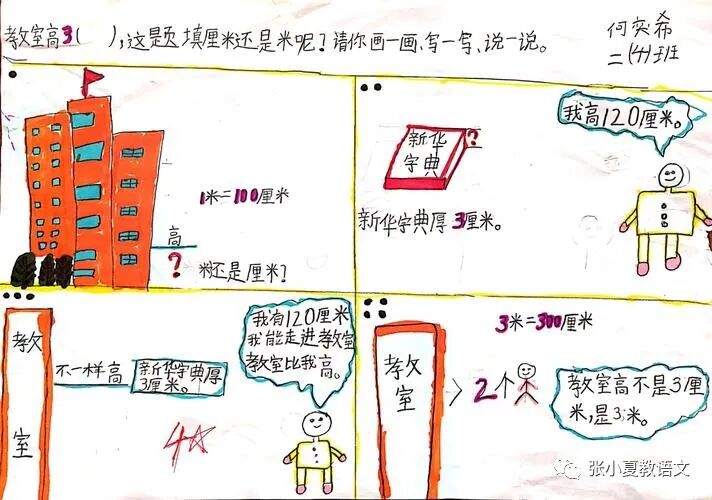 教室高3( ),这题填厘米还是米呢?请你画一画、写一写、说一说。
何奕希
二(4)班
1米=100厘米
高
?
米还是厘米?
新华
字典
?
新华字典厚3厘米。
我高120厘米。
教
室
不一样高
新华字典厚
3厘米。
我有120厘米
我能走进教室
教室比我高。
4☆
教
室
3米=300厘米
>2个
教室高不是3厘
米,是3米。
张小夏教语文